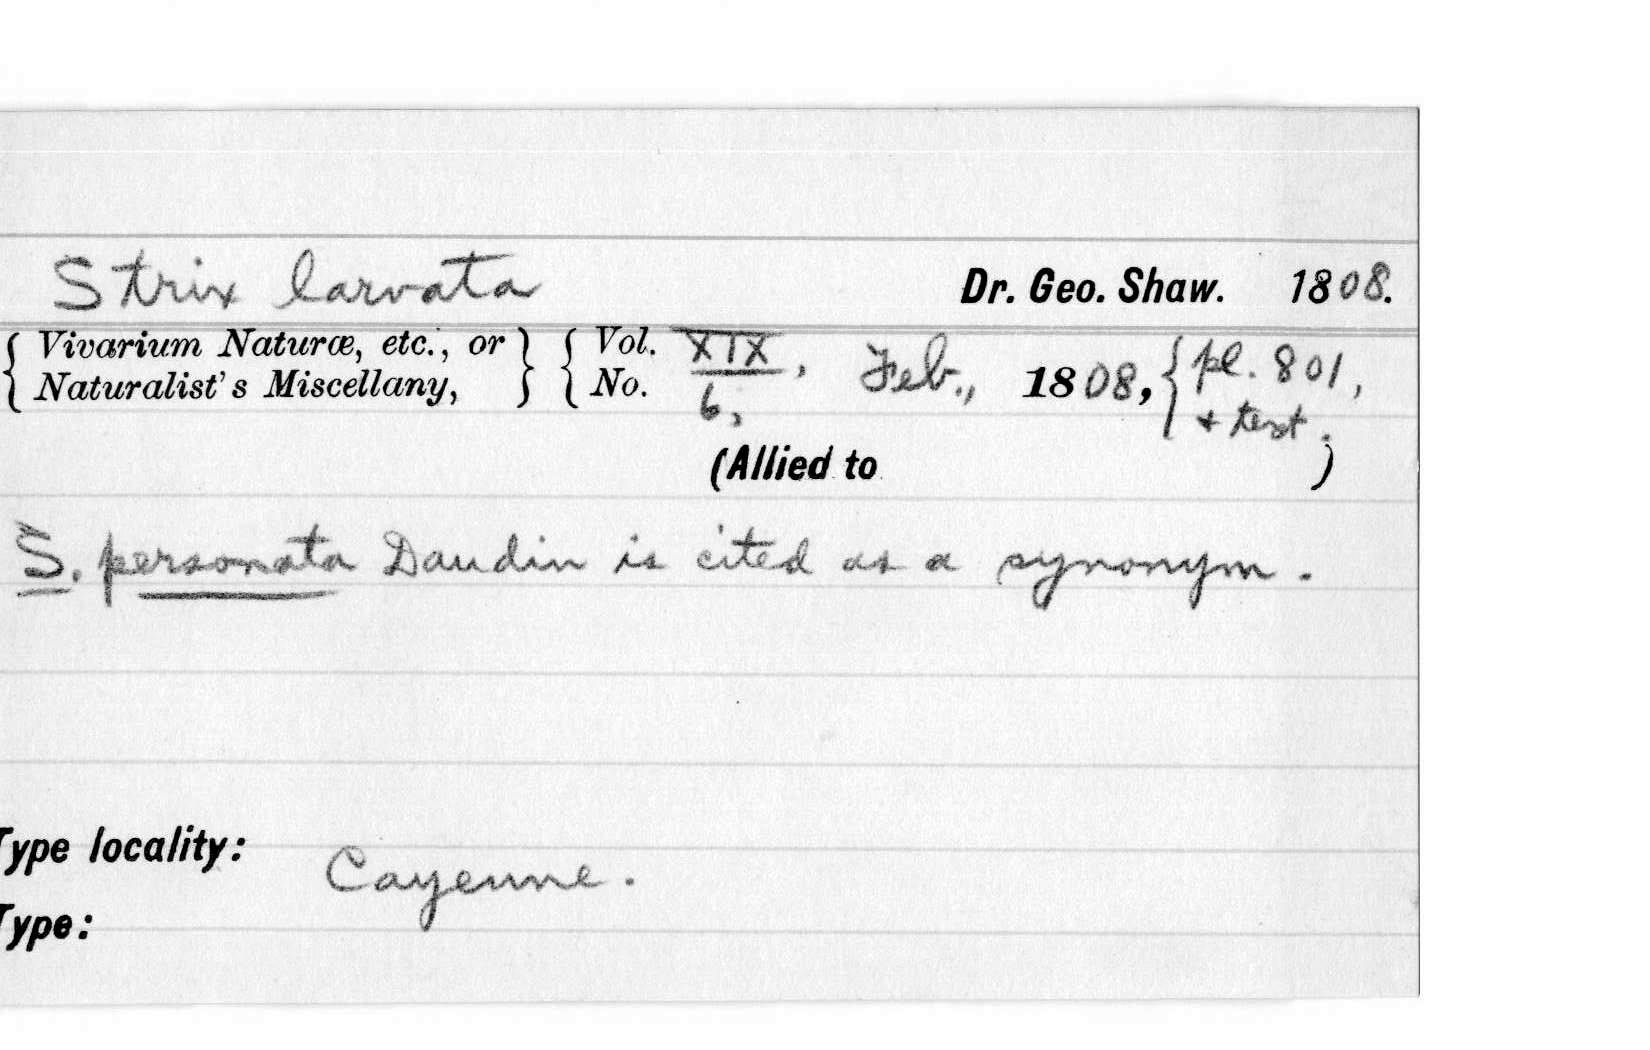 Strix larvata Dr. Geo. Shaw. 1808.
{ Vivarium Naturæ, etc., or } { Vol. XIX, Feb., 1808, { pl. 801,
{ Naturalist's Miscellany, } { No. 6, + text.
(Allied to )
S. personata Daudin is cited as a synonym.
Type locality: Cayenne.
Type: